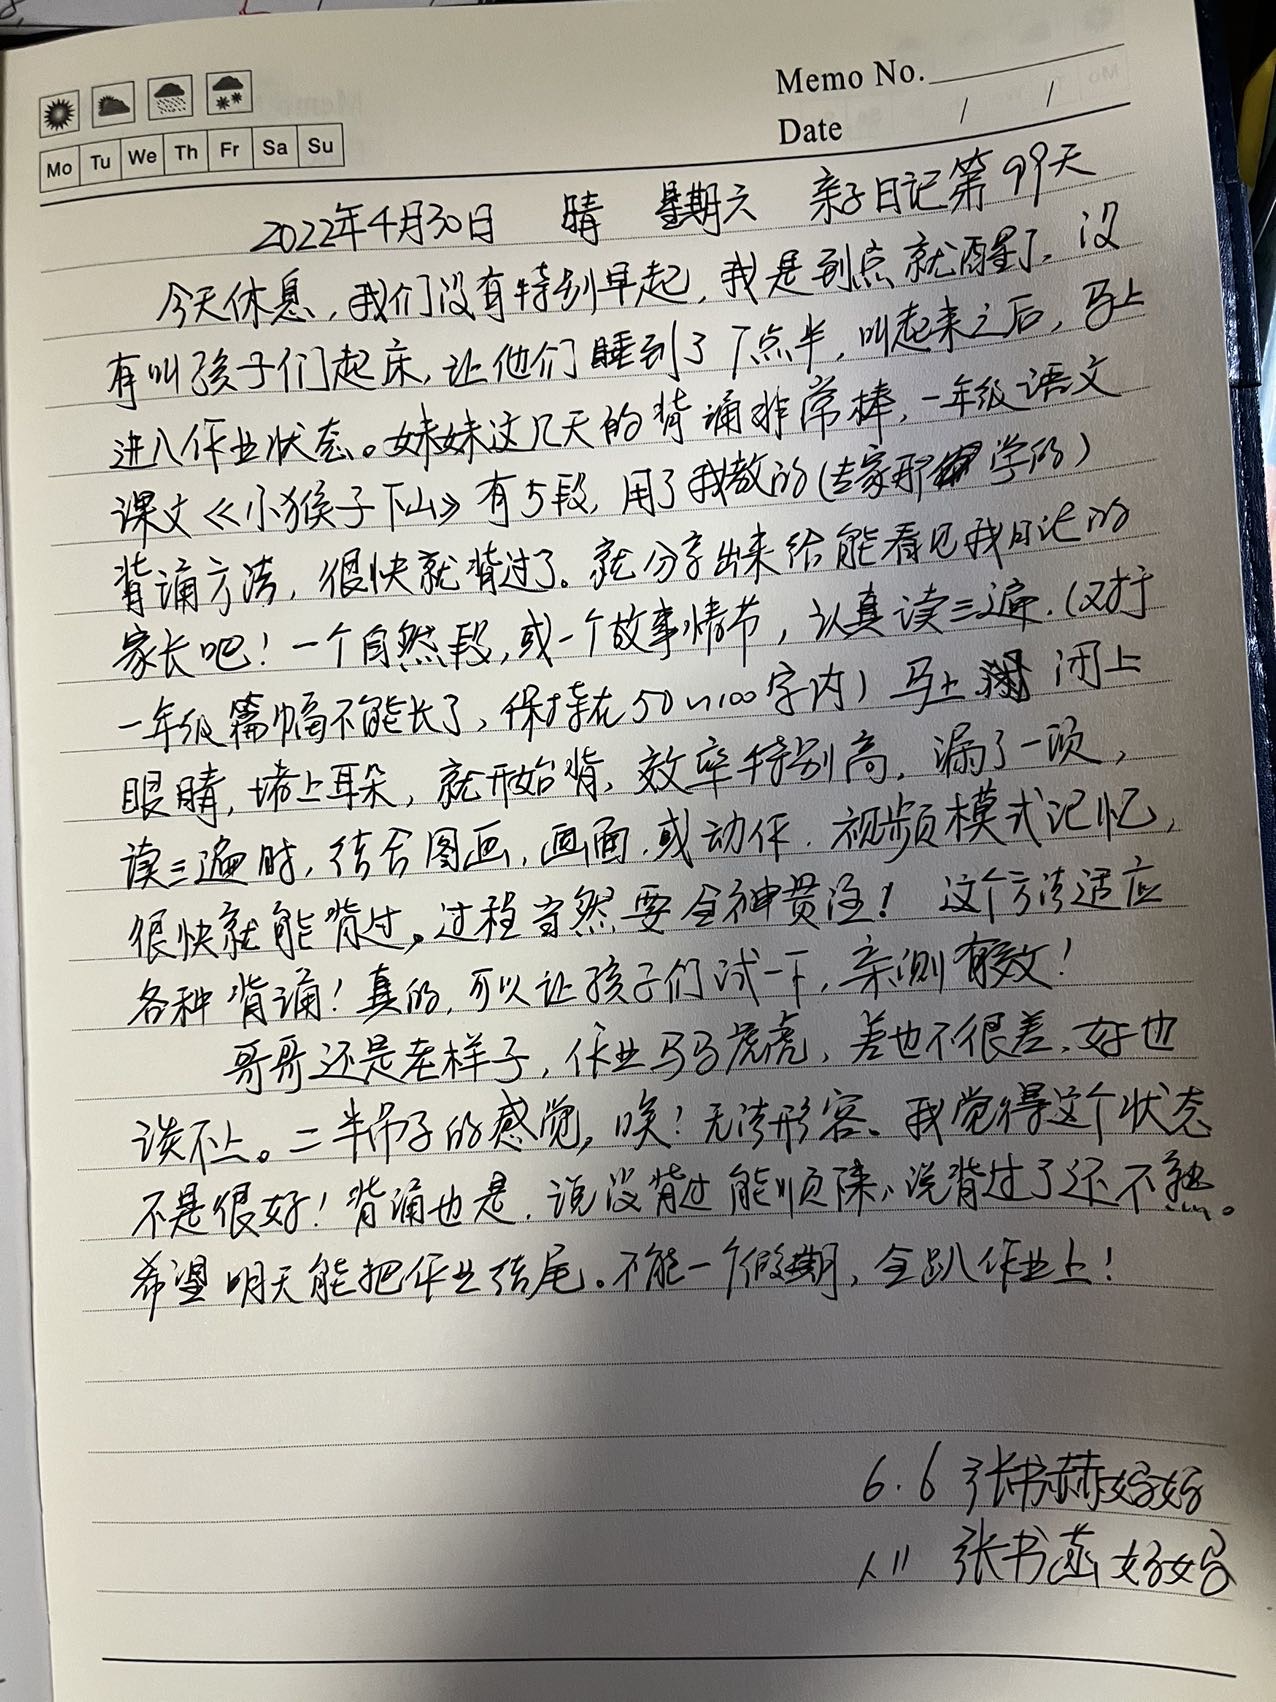 Memo No.
Mo Tu We Th Fr Sa Su
Date / /
2022年4月30日 晴 星期六 亲子日记第99天
今天休息,我们没有特别早起,我是到点就醒了,没
有叫孩子们起床,让他们睡到了7点半,叫起来之后,马上
进入作业状态。妹妹这几天的背诵非常棒,一年级语文
课文《小猴子下山》有5段,用了我教的(专家那学的)
背诵方法,很快就背过了。就分享出来给能看见我日记的
家长吧!一个自然段,或一个故事情节,认真读三遍.(对于
一年级篇幅不能长了,保持在50~100字内)马上闭上
眼睛,堵上耳朵,就开始背,效率特别高,漏了一项,
读三遍时,结合图画,画面,或动作.视频模式记忆,
很快就能背过。过程当然要全神贯注!这个方法适应
各种背诵!真的,可以让孩子们试一下,亲测有效!
哥哥还是老样子,作业马马虎虎,差也不很差、好也
谈不上。二半吊子的感觉,唉!无法形容、我觉得这个状态
不是很好!背诵也是,说没背过能顺下来,说背过了还不熟。
希望明天能把作业结尾。不能一个假期,全趴作业上!
6.6 张书赫妈妈
张书菡妈妈